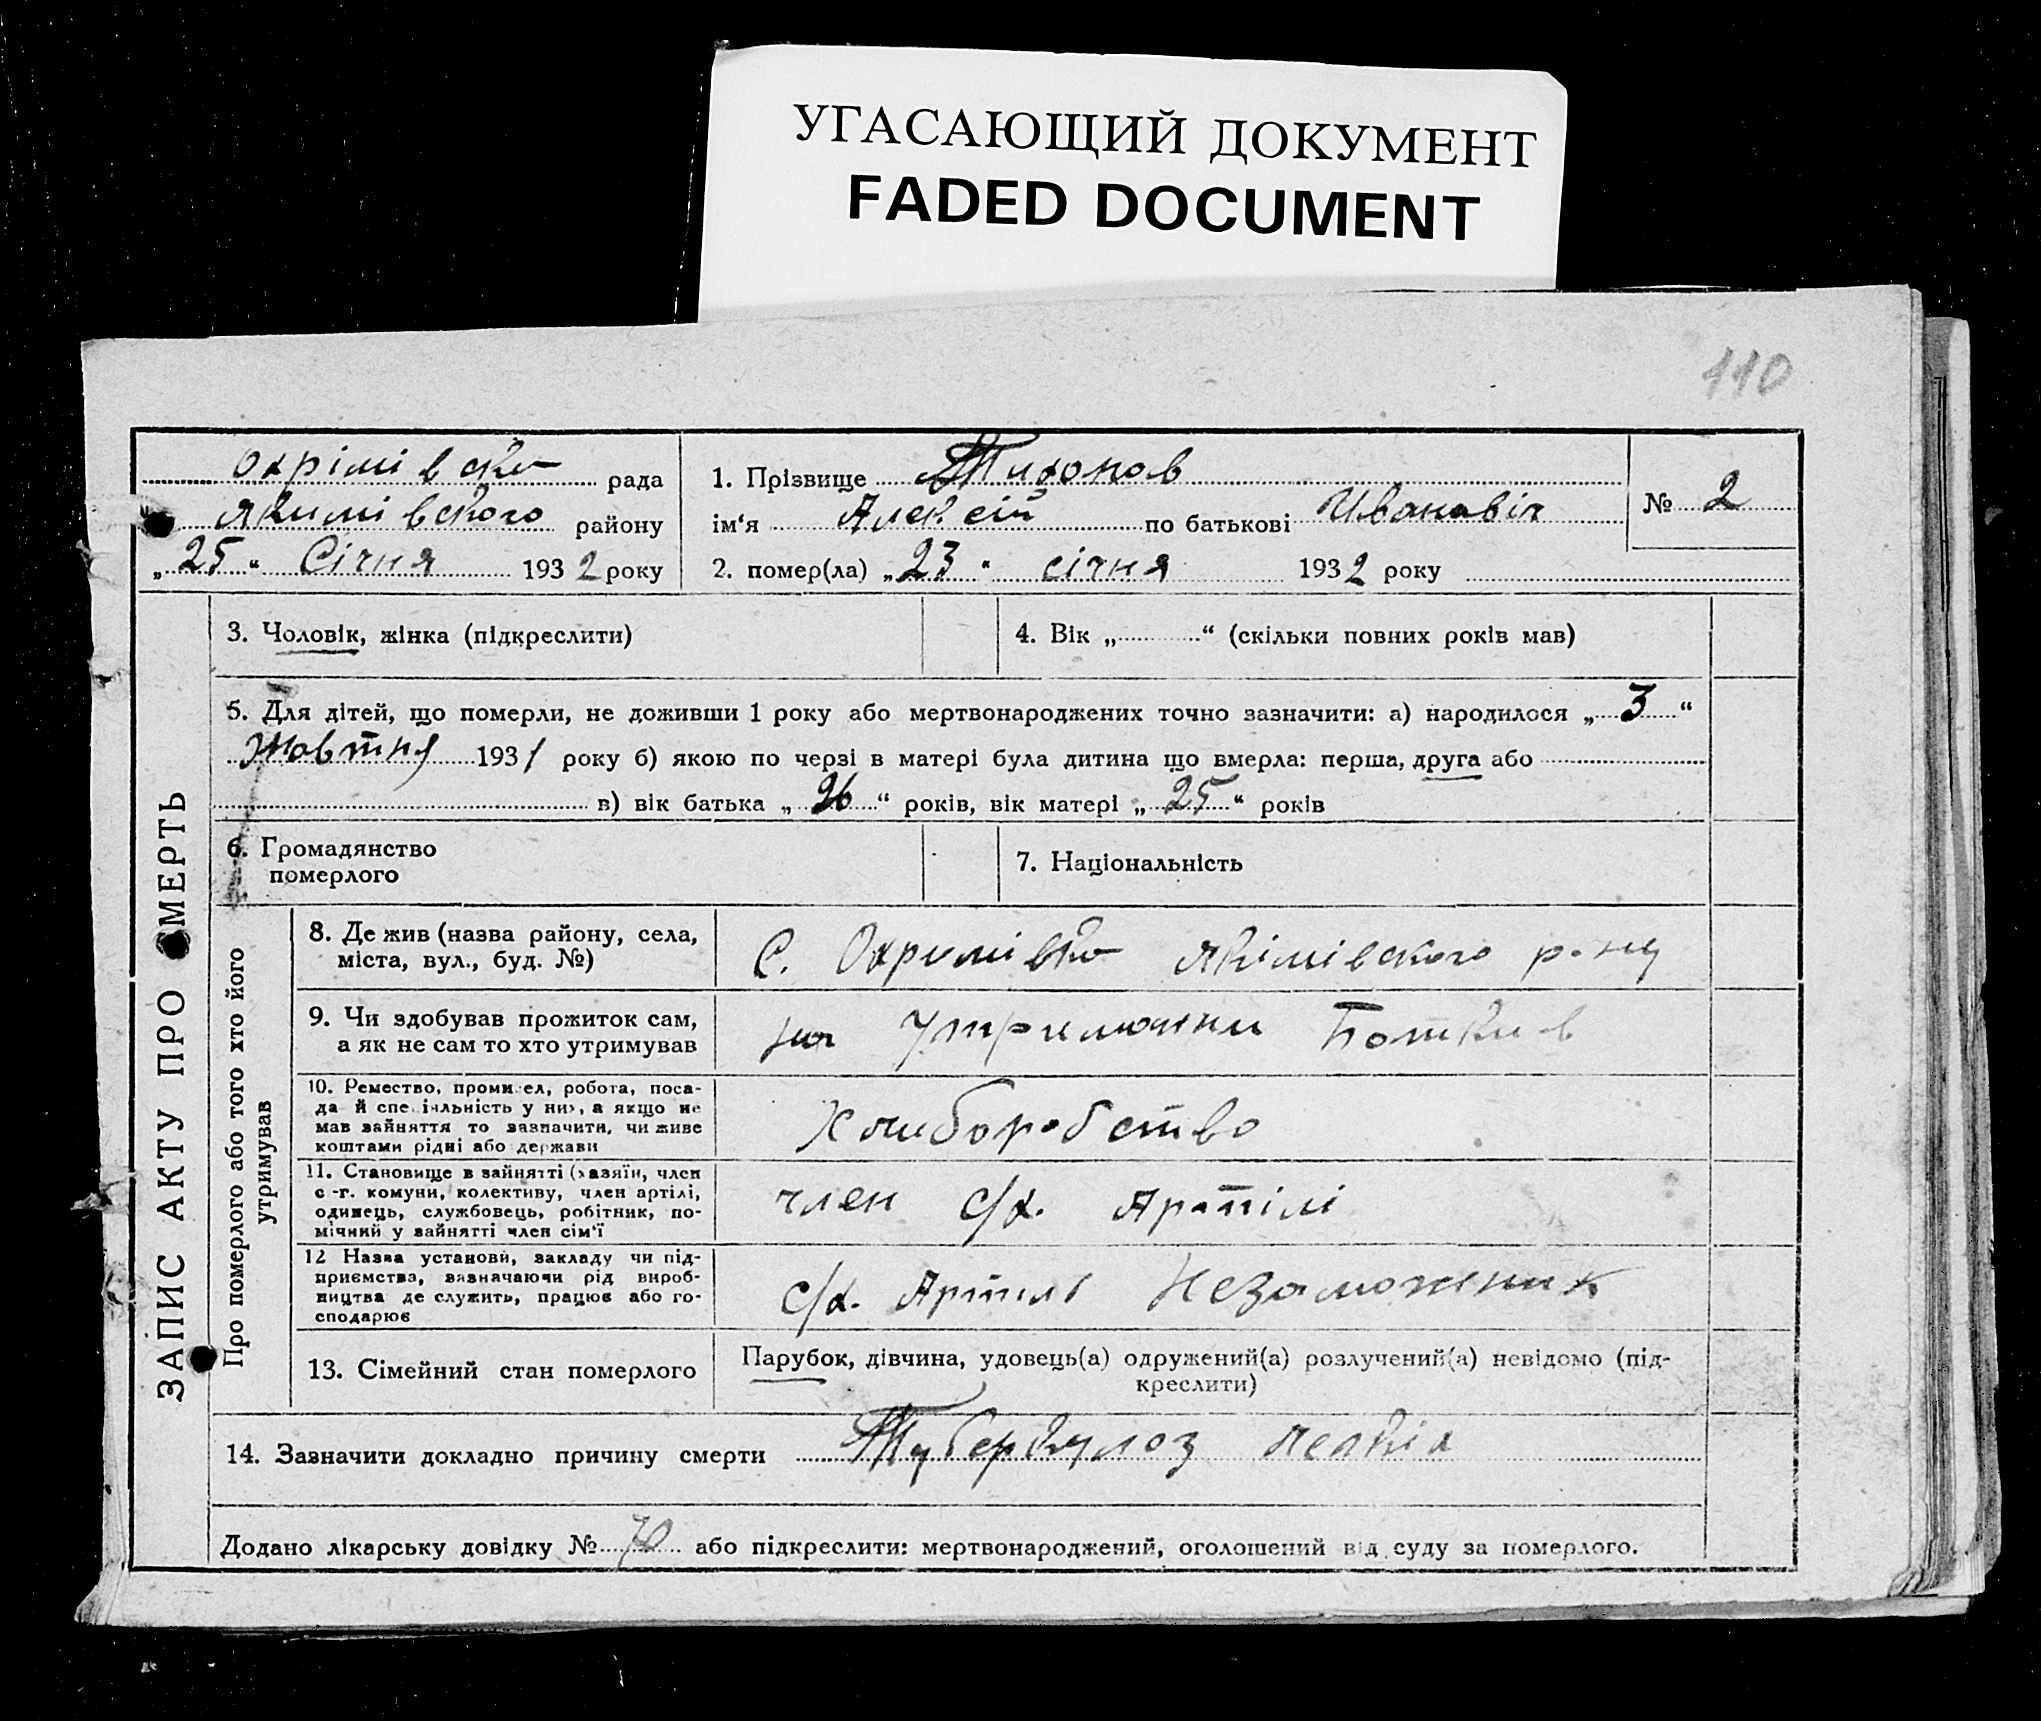 УГАСАЮЩИЙ ДОКУМЕНТ
FADED DOCUMENT
110
Охрімівска рада
Якимівского району
„25“ Січня 1932 року
1. Прізвище Тихонов
ім‘я Алексій по батькові Ивановіч
2. помер(ла) „23“ січня 1932 року
№ 2
ЗАПИС АКТУ ПРО СМЕРТЬ
3. Чоловік, жінка (підкреслити)
4. Вік „ “ (скільки повних років мав)
5. Для дітей, що померли, не доживши 1 року або мертвонароджених точно зазначити: а) народилося „3“
Жовтня 1931 року б) якою по черзі в матері була дитина що вмерла: перша, друга або
в) вік батька „26“ років, вік матері „25“ років
6. Громадянство
померлого
7. Національність
Про померлого або того хто його
утримував
8. Де жив (назва району, села,
міста, вул., буд. №)
С. Охримівка Якімівского р-ну
9. Чи здобував прожиток сам,
а як не сам то хто утримував
на Утриманни Батьків
10. Ремество, промисел, робота, поса-
да й спеціяльність у них, а якщо не
мав зайняття то зазначити, чи живе
коштами рідні або держави
Хлиборобство
11. Становище в зайнятті (хазяїн, член
с.-г. комуни, колективу, член артілі,
одинець, службовець, робітник, по-
мічний у зайнятті член сім‘ї
член с/х. Артілі
12 Назва установи, закладу чи під-
приємства, зазначаючи рід вироб-
ництва де служить, працює або го-
сподарює
с/х. Артиль Незаможник
13. Сімейний стан померлого
Парубок, дівчина, удовець(а) одружений(а) розлучений(а) невідомо (під-
креслити)
14. Зазначити докладно причину смерти Туберкулоз легкіх
Додано лікарську довідку № 70 або підкреслити: мертвонароджений, оголошений від суду за померлого.